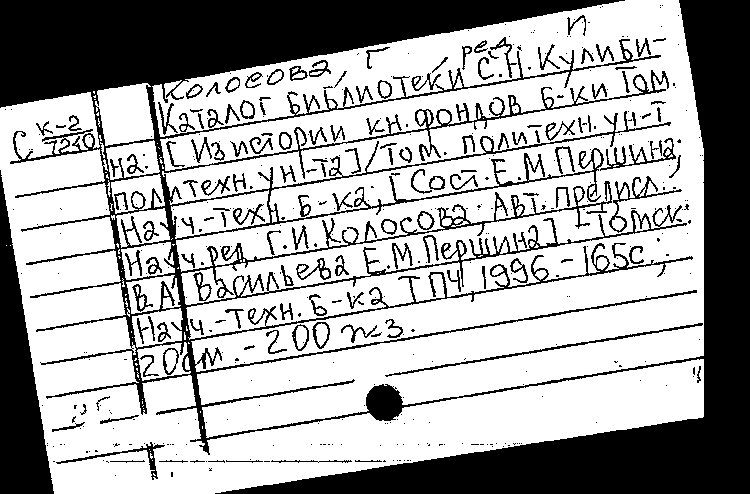 П
Колосова, Г , ред.
Каталог библиотеки С.Н. Кулиби-
С К-2
7240
на: [Из истории кн. фондов б-ки Том.
политехн. ун-та] / Том. политехн. ун-т.
Науч.-техн. б-ка; [Сост. Е.М. Першина;
Науч. ред. Г.И. Колосова; Авт. предисл.:
В.А. Васильева, Е.М. Першина]. - Томск:
Науч.-техн. б-ка ТПУ, 1996. - 165с.;
20см. - 200 экз.